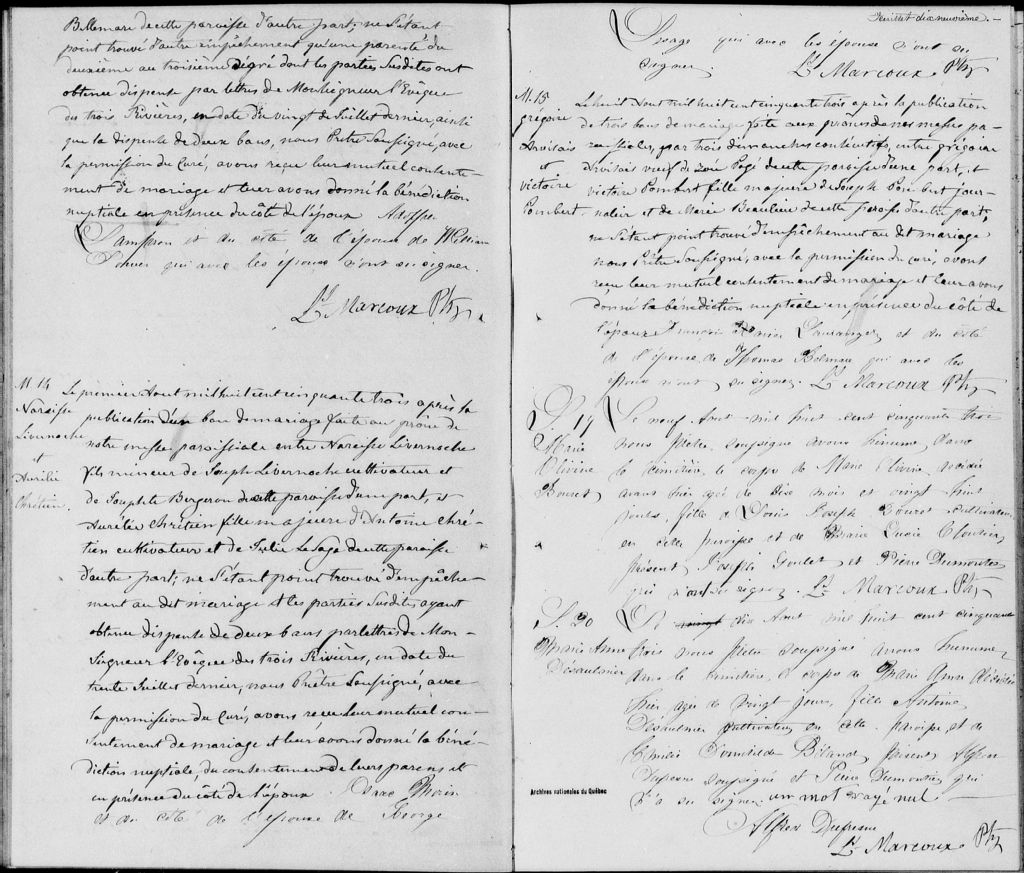 Bellemare de cette paroisse d'autre part; ne s'étant
point trouvé d'autre empêchement qu'une parenté du
deuxième au troisième dégré dont les parties susdites ont
obtenu dispense par lettres de Monseigneur l'Evêque
des trois Rivières, en date du vingt de Juillet dernier, ainsi
que la dispense de deux bans, nous Prêtre Soussigné, avec
la permission du Curé, avons reçu leur mutuel consente-
ment de mariage et leur avons donné la bénédiction
nuptiale en présence du côté de l'époux
Sampson et du côté de l'épouse de William
qui avec les époux n'ont su signer.
Ls Marcoux Ptre
M. 14
Narcisse
Livernoche
et
Aurélie
Chrétien.
Le premier Aout mil huit cent cinquante trois après la
publication d'un ban de mariage faite au prône de
notre messe paroissiale entre Narcisse Livernoche
fils mineur de Joseph Livernoche cultivateur et
de Josephte Bergeron de cette paroisse d'une part, et
Aurélie Chrétien fille majeure d'Antoine Chré-
tien cultivateur et de Julie Lesage de cette paroisse
d'autre part; ne s'étant point trouvé d'empêche-
ment au dit mariage et les parties susdites ayant
obtenu dispense de deux bans par lettres de Mon-
seigneur l'Evêque des trois Rivières, en date du
trente Juillet dernier, nous Prêtre Soussigné, avec
la permission du Curé, avons reçu leur mutuel con-
sentement de mariage et leur avons donné la béné-
diction nuptiale, du consentement de leurs parens et
en présence du côté de l'époux Isaac
et du côté de l'épouse de George
Feuillet dix neuvième.
Lesage qui avec les époux n'ont su
signer. Ls Marcoux Ptre
M. 15
grégoire
Desilais
et
victoire
Pombert
Le huit Aout mil huit cent cinquante trois après la publication
de trois bans de mariage faite aux prônes de nos messes pa-
roissiales, par trois dimanches consécutifs, entre grégoire
Desilais veuf de Zoé Pagé de cette paroisse d'une part, et
victoire Pombert fille majeure de Joseph Pombert jour-
nalier et de Marie Beaulieu de cette paroisse d'autre part;
ne s'étant point trouvé d'empêchement au dit mariage
nous Prêtre Soussigné, avec la permission du Curé, avons
reçu leur mutuel consentement de mariage et leur avons
donné la bénédiction nuptiale en présence du côté de
l'époux et du côté
de l'épouse de Thomas qui avec les
époux n'ont su signer. Ls Marcoux Ptre
S. 19
Marie
Olivine
Bouret
Le neuf Aout mil huit cent cinquante trois
nous Prêtre soussigné avons inhumé, dans
le cimetière le corps de Marie Olivine décédée
avant hier agée de dix mois et vingt huit
jours, fille de Louis Joseph Bouret cultivateur
en cette paroisse et de Marie Lucie Cloutier,
présent Joseph Goulet et Pierre Dumontier
qui n'ont su signer. Ls Marcoux Ptre
S. 20
Marie Anne
Désaulnier
Le vingt dix Aout mil huit cent cinquante
trois nous Prêtre soussigné avons inhumé
dans le cimetière, le corps de Marie Anne décédée
hier agée de vingt jours, fille Antoine
Désaulnier cultivateur en cette paroisse et de
Emilie Domitilde Béland, présent Alfred
Dufresne soussigné et Pierre Dumontier qui
n'a su signer. un mot rayé nul
Alfred Dufresne
Ls Marcoux Ptre
Archives nationales du Québec